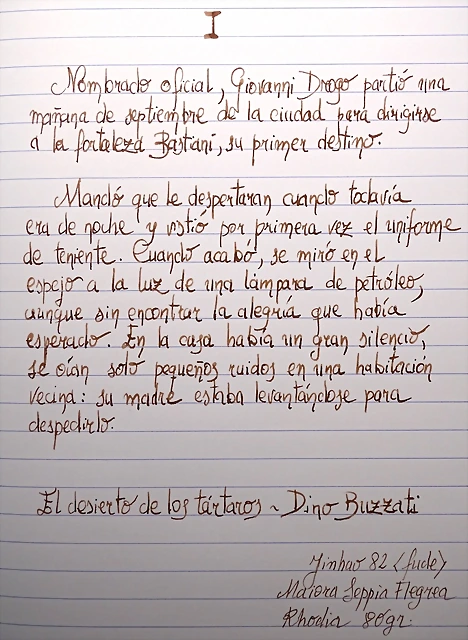 I
Nombrado oficial, Giovanni Drogo partió una
mañana de septiembre de la ciudad para dirigirse
a la fortaleza Bastiani, su primer destino.
Mandó que le despertaran cuando todavía
era de noche y vistió por primera vez el uniforme
de teniente. Cuando acabó, se miró en el
espejo a la luz de una lámpara de petróleo,
aunque sin encontrar la alegría que había
esperado. En la casa había un gran silencio,
se oían solo pequeños ruidos en una habitación
vecina: su madre estaba levantándose para
despedirlo.
El desierto de los tártaros ~ Dino Buzzati
Jinhao 82 (fude)
Maiora Seppia Flegrea
Rhodia 80gr.